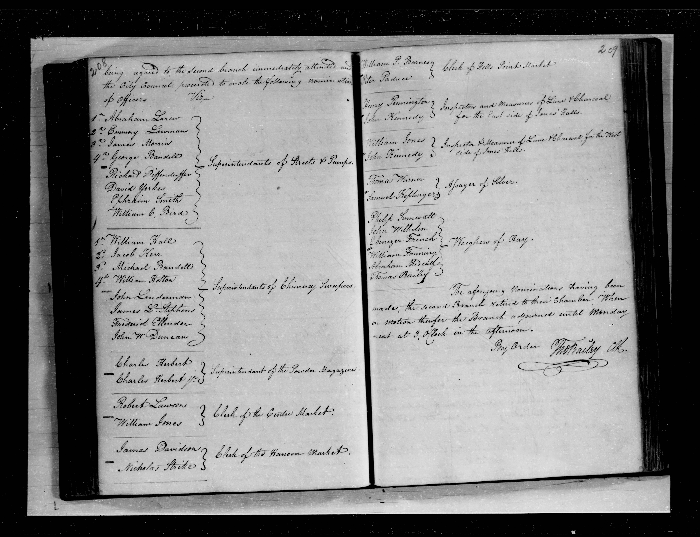 being agreed to the second branch immediately attended and
the City Council proceeded to make the following nominations
of officers Viz
1st Abraham Larew
2d
3d James Morris
4th George Randell
Richard
David Yorke
Ephraim Smith
William C. Bird
Superintendants of Streets & Pumps.
1st William Hall
2d Jacob Herr
3d Michael Randell
4th William Bolton
John Linderman
James L. Stephens
Frederick
John W. Duncan
Superintendents of Chimney Sweepers
Charles Herbert
Charles Herbert Jr.
Superintendant of the Powder Magazine
Robert Lawson
William Jones
Clerk of the Centre Market.
James Davidson
Nicholas Strike
Clerk of the Hanover Market.
209
William P. Barnes
Clerk of Fells Point Market
Henry Pennington
John Kennedy
Inspectors and Measurers of Lime & Charcoal
for the East side of Jones Falls.
William Jones
John Kennedy
Inspector & Measurer of Lime & Charcoal for the West
side of Jones Falls.
Thomas Warner
Samuel
Assayer of Silver.
Philip
John
Ebenezer French
William
Abraham
Thomas Bailey
Weighers of Hay.
The aforegoing Nominations having been
made, the second Branch retired to their Chamber When
on motion the Branch adjourned until Monday
next at 3 OClock in the afternoon.
By Order Thos Bailey Clk.